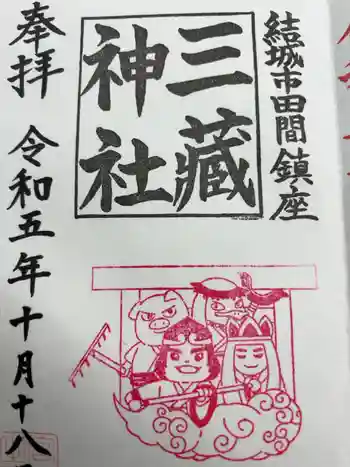 結城市田間鎮座
三藏
神社
奉拝
令和五年十月十八